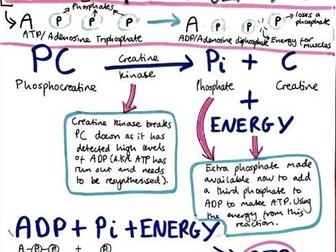 Phosphates
loses a phosphate
A P P P → A P P P
ATP/Adenosine Triphosphate
ADP/Adenosine diphosphate
Energy for muscles
PC Creatine Kinase → Pi + C
Phosphocreatine
Phosphate
Creatine
+
ENERGY
Creatine Kinase breaks
PC down as it has
detected high levels
of ADP (A.KA ATP has
run out and needs
to be resynthesised).
Extra phosphate made
available now to add
a third phosphate to
ADP to make ATP. Using
the energy from this
reaction.
ADP + Pi + ENERGY
A-P-P + P